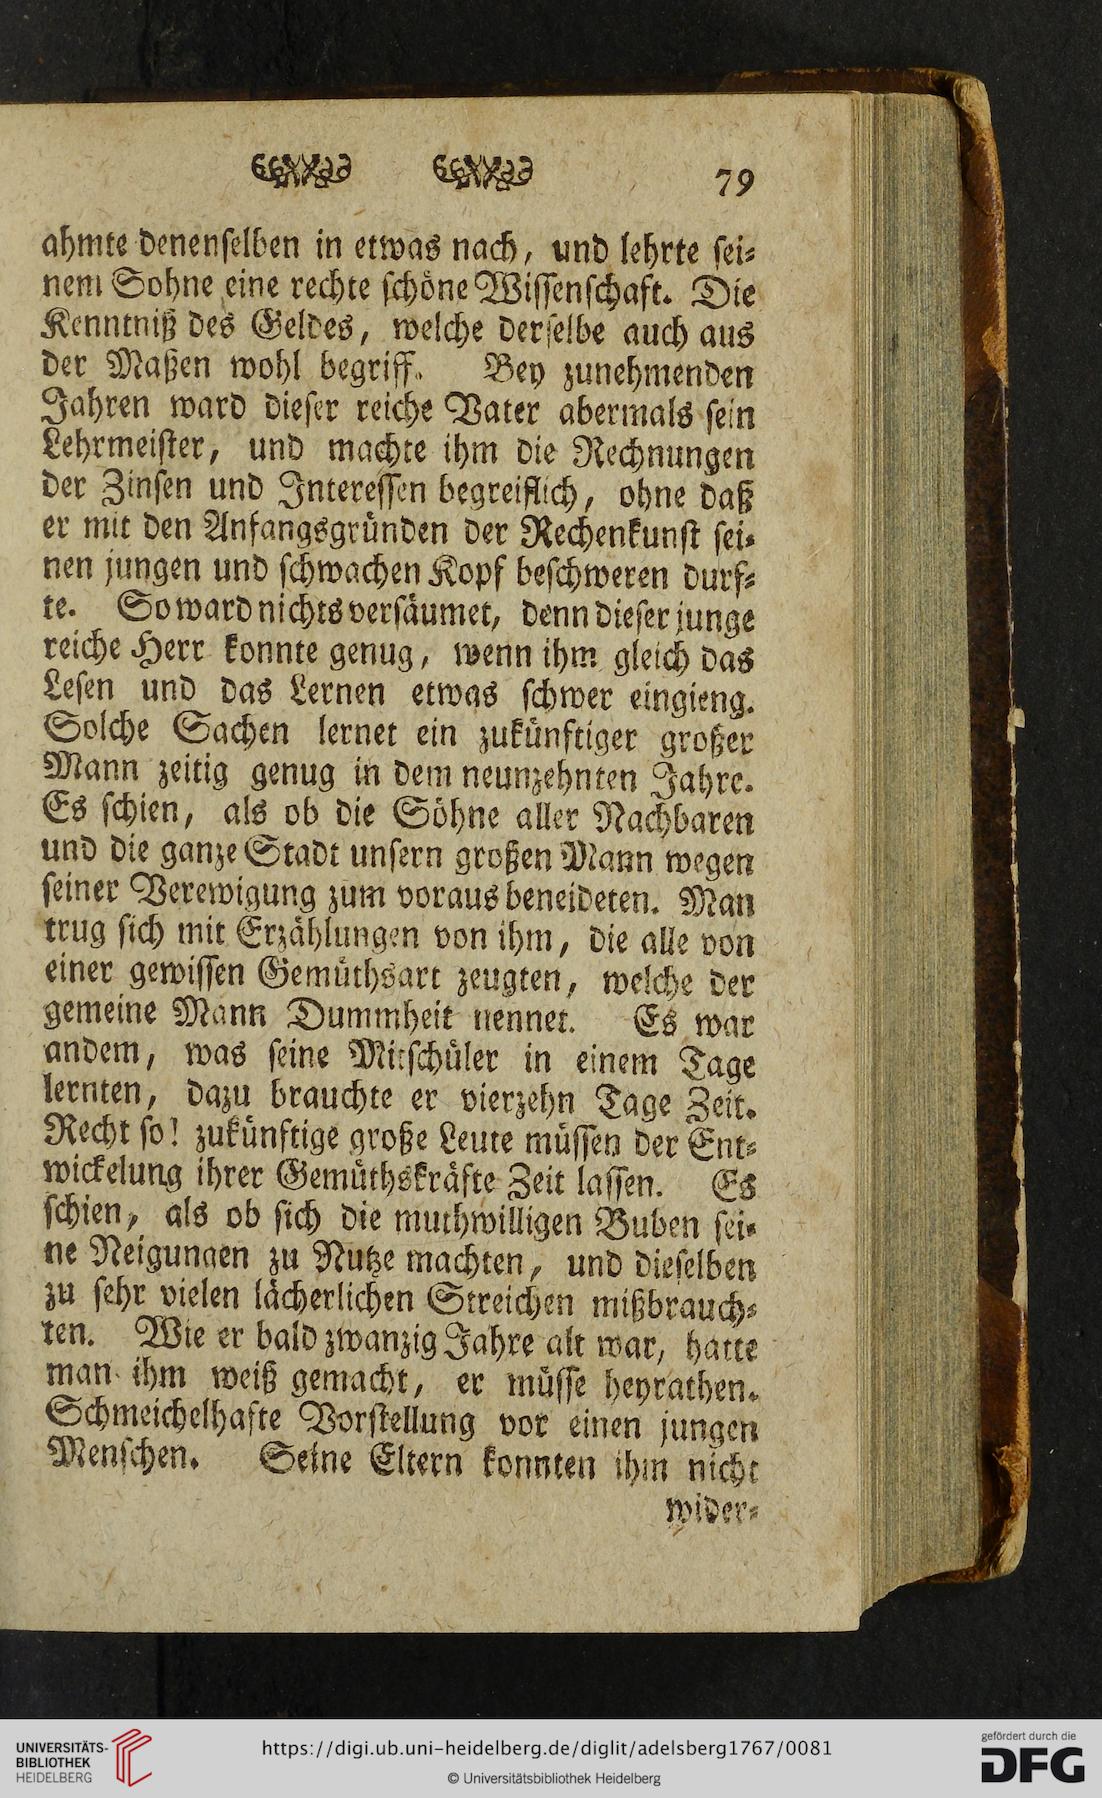 79
ahmte denenſelben in etwas nach, und lehrte ſei⸗
nem Sohne eine rechte ſchöne Wiſſenſchaft. Die
Kenntniß des Geldes, welche derſelbe auch aus
der Maßen wohl begriff. Bey zunehmenden
Jahren ward dieſer reiche Vater abermals ſein
Lehrmeiſter, und machte ihm die Rechnungen
der Zinſen und Intereſſen begreiflich, ohne daß
er mit den Anfangsgründen der Rechenkunſt ſei⸗
nen jungen und ſchwachen Kopf beſchweren durf⸗
te. So ward nichts verſäumet, denn dieſer junge
reiche Herr konnte genug, wenn ihm gleich das
Leſen und das Lernen etwas ſchwer eingieng.
Solche Sachen lernet ein zukünftiger großer
Mann zeitig genug in dem neunzehnten Jahre.
Es ſchien, als ob die Söhne aller Nachbaren
und die ganze Stadt unſern großen Mann wegen
ſeiner Verewigung zum voraus beneideten. Man
trug ſich mit Erzählungen von ihm, die alle von
einer gewiſſen Gemüthsart zeugten, welche der
gemeine Mann Dummheit nennet. Es war
andem, was ſeine Mitſchüler in einem Tage
lernten, dazu brauchte er vierzehn Tage Zeit.
Recht ſo! zukünftige große Leute müſſen der Ent⸗
wickelung ihrer Gemüthskräfte Zeit laſſen. Es
ſchien, als ob ſich die muthwilligen Buben ſei⸗
ne Neigungen zu Nutze machten, und dieſelben
zu ſehr vielen lächerlichen Streichen mißbrauch⸗
ten. Wie er bald zwanzig Jahre alt war, hatte
man ihm weiß gemacht, er müſſe heyrathen.
Schmeichelhafte Vorſtellung vor einen jungen
Menſchen. Seine Eltern konnten ihm nicht
wider⸗
UNIVERSITÄTS-
BIBLIOTHEK
HEIDELBERG
https://digi.ub.uni-heidelberg.de/diglit/adelsberg1767/0081
© Universitätsbibliothek Heidelberg
gefördert durch die
DFG